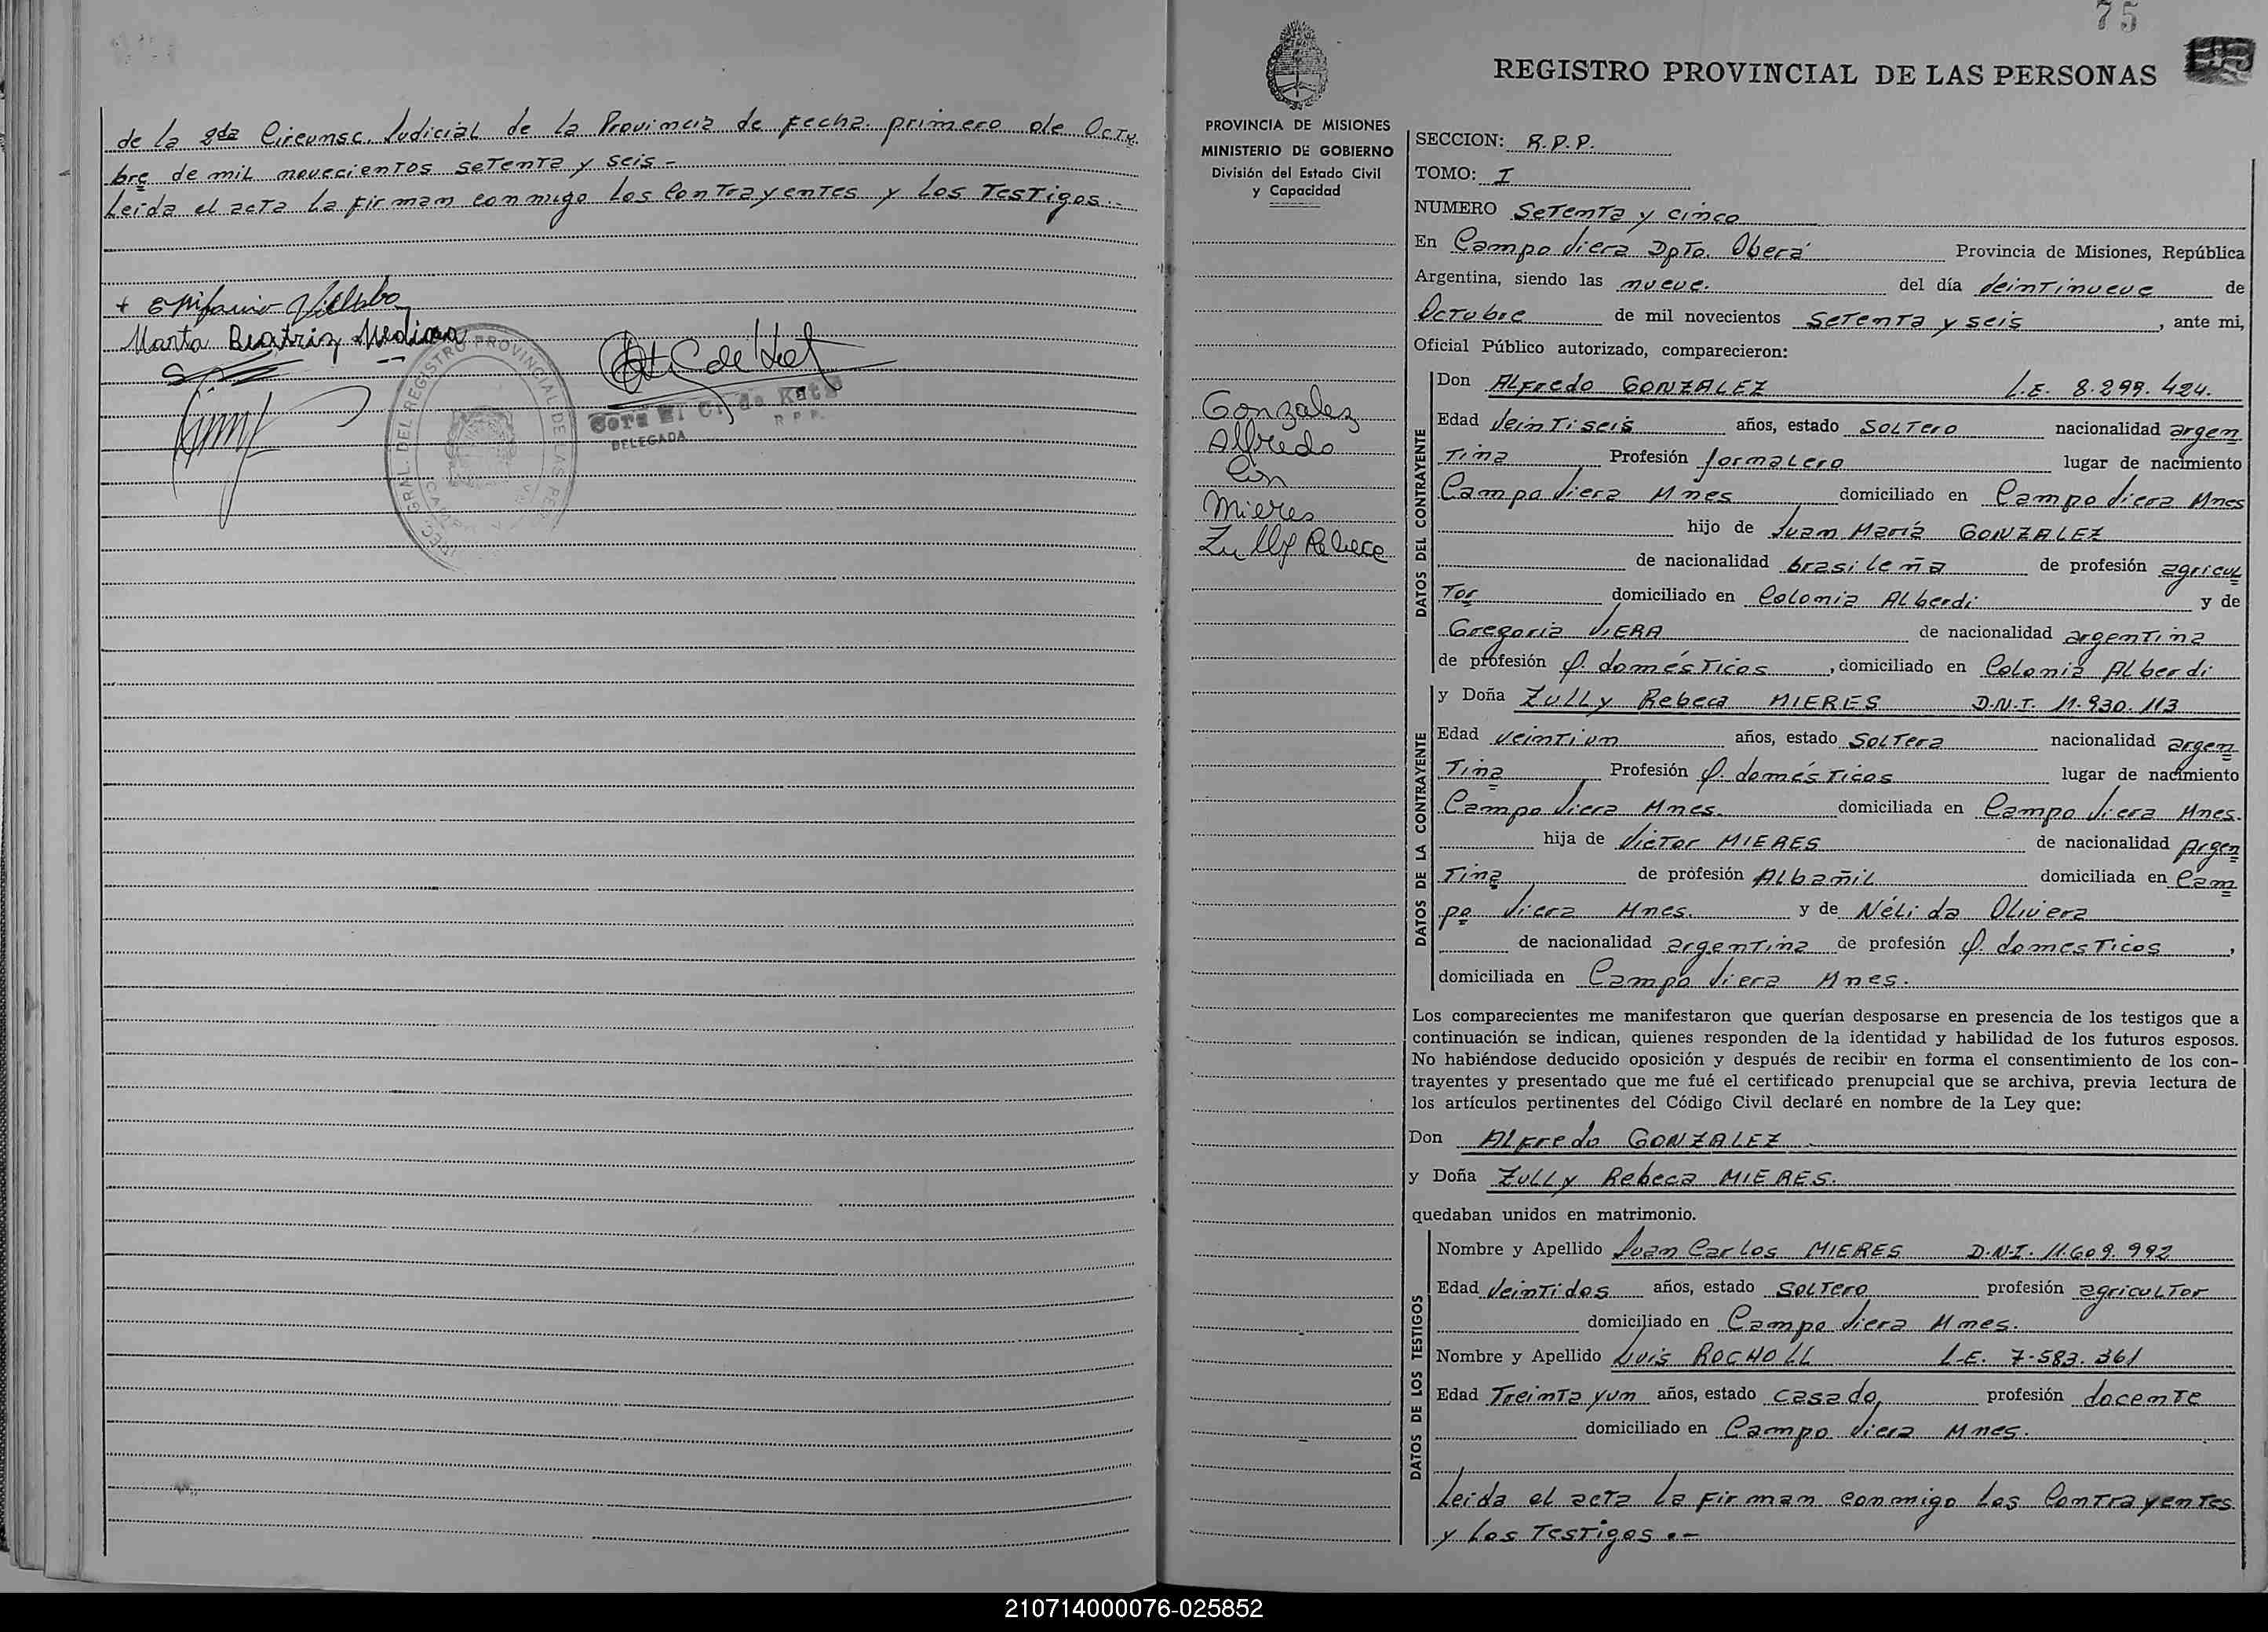 de la 2da Circunsc. Judicial de la Provincia de fecha primero de Octu
bre de mil novecientos setenta y seis -
Leida el acta la firman conmigo los contrayentes y los testigos.-
Marta Beatriz Medina
Cora E. C. de Katz
DELEGADA R. P. P.
75
REGISTRO PROVINCIAL DE LAS PERSONAS
PROVINCIA DE MISIONES
MINISTERIO DE GOBIERNO
División del Estado Civil
y Capacidad
Gonzalez
Alfredo
Con
Mieres
Zully Rebeca
SECCION: R.P.P.
TOMO: I
NUMERO Setenta y cinco
En Campo Viera Dpto. Oberá Provincia de Misiones, República
Argentina, siendo las nueve. del día Veintinueve de
Octubre de mil novecientos setenta y seis, ante mi,
Oficial Público autorizado, comparecieron:
DATOS DEL CONTRAYENTE
Don Alfredo GONZALEZ L.E. 8.299.424.
Edad Veintiseis años, estado soltero nacionalidad argen
tina Profesión Jornalero lugar de nacimiento
Campo Viera Mnes domiciliado en Campo Viera Mnes
hijo de Juan María GONZALEZ
de nacionalidad brasileña de profesión agricul
tor domiciliado en Colonia Alberdi y de
Gregoria VIERA de nacionalidad argentina
de profesión q. domésticos, domiciliado en Colonia Alberdi
DATOS DE LA CONTRAYENTE
y Doña Zully Rebeca MIERES D.N.I. 11.930.113
Edad Veintiun años, estado soltera nacionalidad argen
tina Profesión q. domésticos lugar de nacimiento
Campo Viera Mnes. domiciliada en Campo Viera Mnes.
hija de Victor MIERES de nacionalidad Argen
tina de profesión Albañil domiciliada en Cam
po Viera Mnes. y de Nélida Olivera
de nacionalidad argentina de profesión q. domesticos,
domiciliada en Campo Viera Mnes.
Los comparecientes me manifestaron que querían desposarse en presencia de los testigos que a
continuación se indican, quienes responden de la identidad y habilidad de los futuros esposos.
No habiéndose deducido oposición y después de recibir en forma el consentimiento de los con-
trayentes y presentado que me fué el certificado prenupcial que se archiva, previa lectura de
los artículos pertinentes del Código Civil declaré en nombre de la Ley que:
Don Alfredo GONZALEZ
y Doña Zully Rebeca MIERES.
quedaban unidos en matrimonio.
DATOS DE LOS TESTIGOS
Nombre y Apellido Juan Carlos MIERES D.N.I. 11.609.992
Edad Veintidos años, estado soltero profesión agricultor
domiciliado en Campo Viera Mnes.
Nombre y Apellido Luis ROCHOLL L.E. 7.583.361
Edad Treinta y un años, estado casado, profesión docente
domiciliado en Campo Viera Mnes.
Leida el acta la firman conmigo los Contrayentes
y los Testigos.-
210714000076-025852